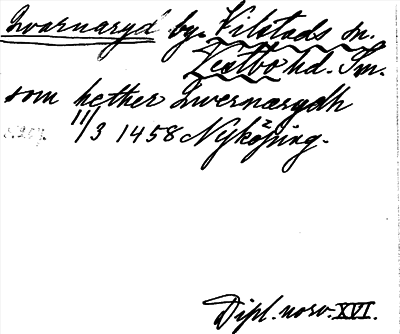 Qvarnaryd by. Vilstads sn.
Västbo hd. Sm.
som hether Qwernarydh
11/3 1458 Nyköping.
Dipl. norv. XVI.